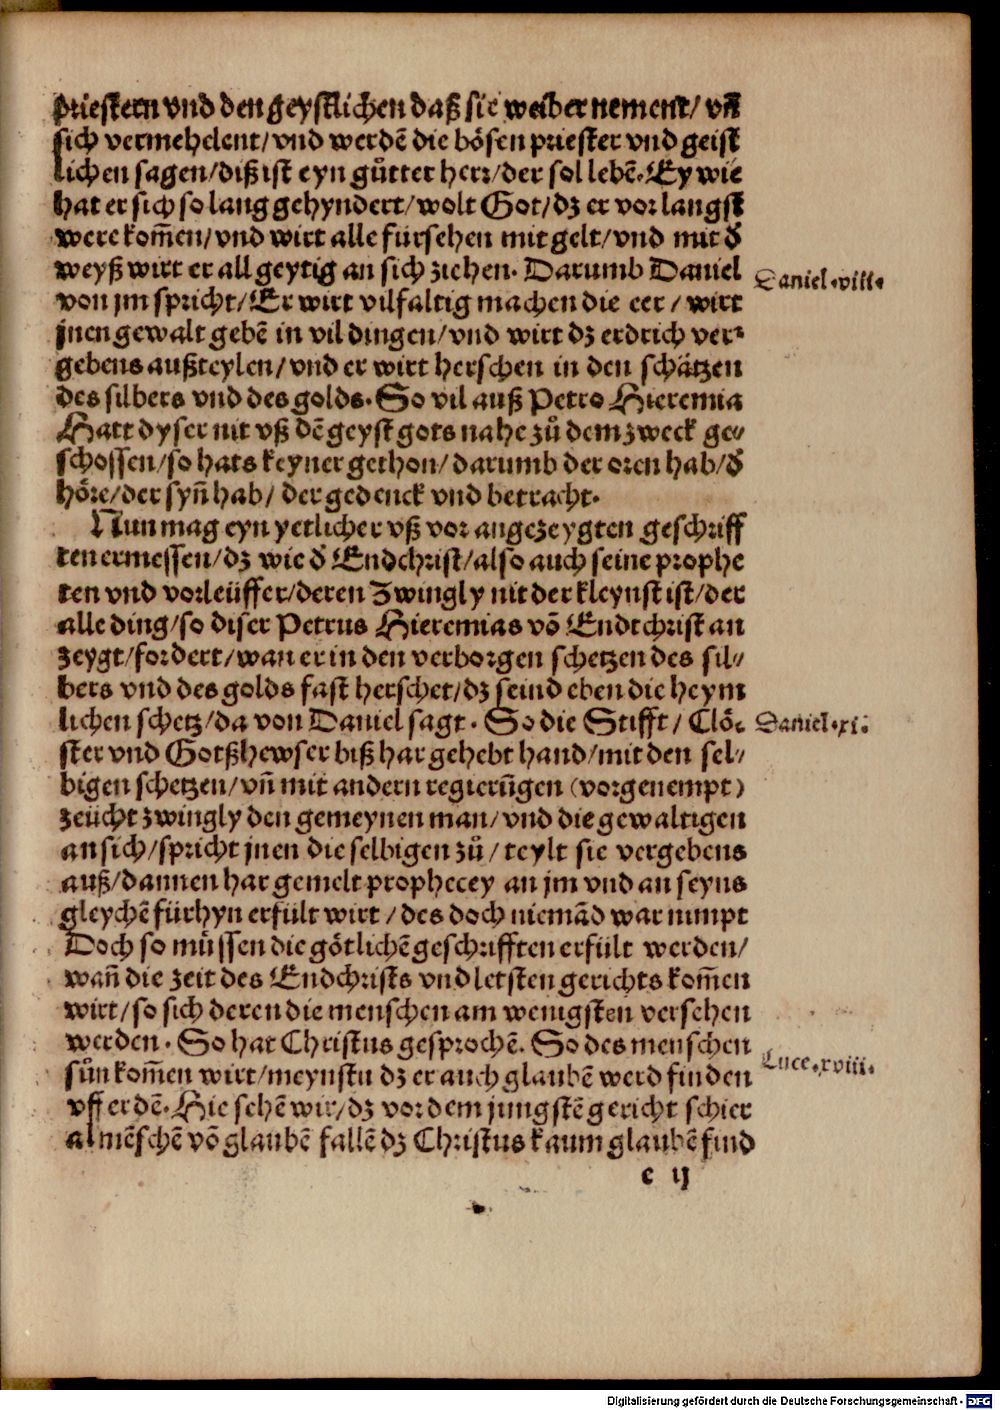 priestern vnd den geystlichen daß sie weiber nement/ vñ
sich vermehelent/vnd werdē die bösen priester vnd geist
lichen sagen/diß ist eyn gůtter herr/der sol lebē. Ey wie
hat er sich so lang gehyndert/wolt Got/dz er vor langst
were kom̄en/vnd wirt alle fürsehen mit gelt/vnd mit d̕
weyß wirt er all geytig an sich ziehen. Darumb Daniel
Daniel.viii.
von jm spricht/Er wirt vilfaltig machen die eer/ wirt
jnen gewalt gebē in vil dingen/vnd wirt dz erdrich ver-
gebens außteylen/vnd er wirt herschen in den schätzen
des silbers vnd des golds. So vil auß Petro Hieremia
Hatt dyser nit vß dē geyst gots nahe zů dem zweck ge-
schossen/so hats keyner gethon/darumb der oren hab/d̕
höre/der syñ hab/ der gedenck vnd betracht.
Nun mag eyn yetlicher vß vor angezeygten geschriff
ten ermessen/dz wie d̕ Endchrist/also auch seine prophe
ten vnd vorleüffer/deren Zwingly nit der kleynst ist/der
alle ding/so diser Petrus Hieremias vō Endtchrist an
zeygt/fordert/wan er in den verborgen schetzen des sil-
bers vnd des golds fast herschet/dz seind eben die heym
lichen schetz/da von Daniel sagt. So die Stifft/ Clö-
Daniel.xi.
ster vnd Gotßhewser biß har gehebt hand/mit den sel-
bigen schetzen/vñ mit andern regierūgen (vorgenempt)
zeücht zwingly den gemeynen man/vnd die gewaltigen
an sich/spricht jnen die selbigen zů/ teylt sie vergebens
auß/dannen har gemelt prophecey an jm vnd an seyns
gleychē fürhyn erfült wirt/des doch niemād war nimpt
Doch so müssen die götlichē geschrifften erfült werden/
wañ die zeit des Endchrists vnd letsten gerichts kom̄en
wirt/so sich deren die menschen am wenigsten versehen
werden. So hat Christus gesprochē. So des menschen
Luce.xviii.
sůn kom̄en wirt/meynstu dz er auch glaubē werd finden
vff erdē. Hie sehē wir/dz vor dem jungstē gericht schier
al mēschē vō glaubē fallē dz Christus kaum glaubē find
c ij
Digitalisierung gefördert durch die Deutsche Forschungsgemeinschaft - DFG